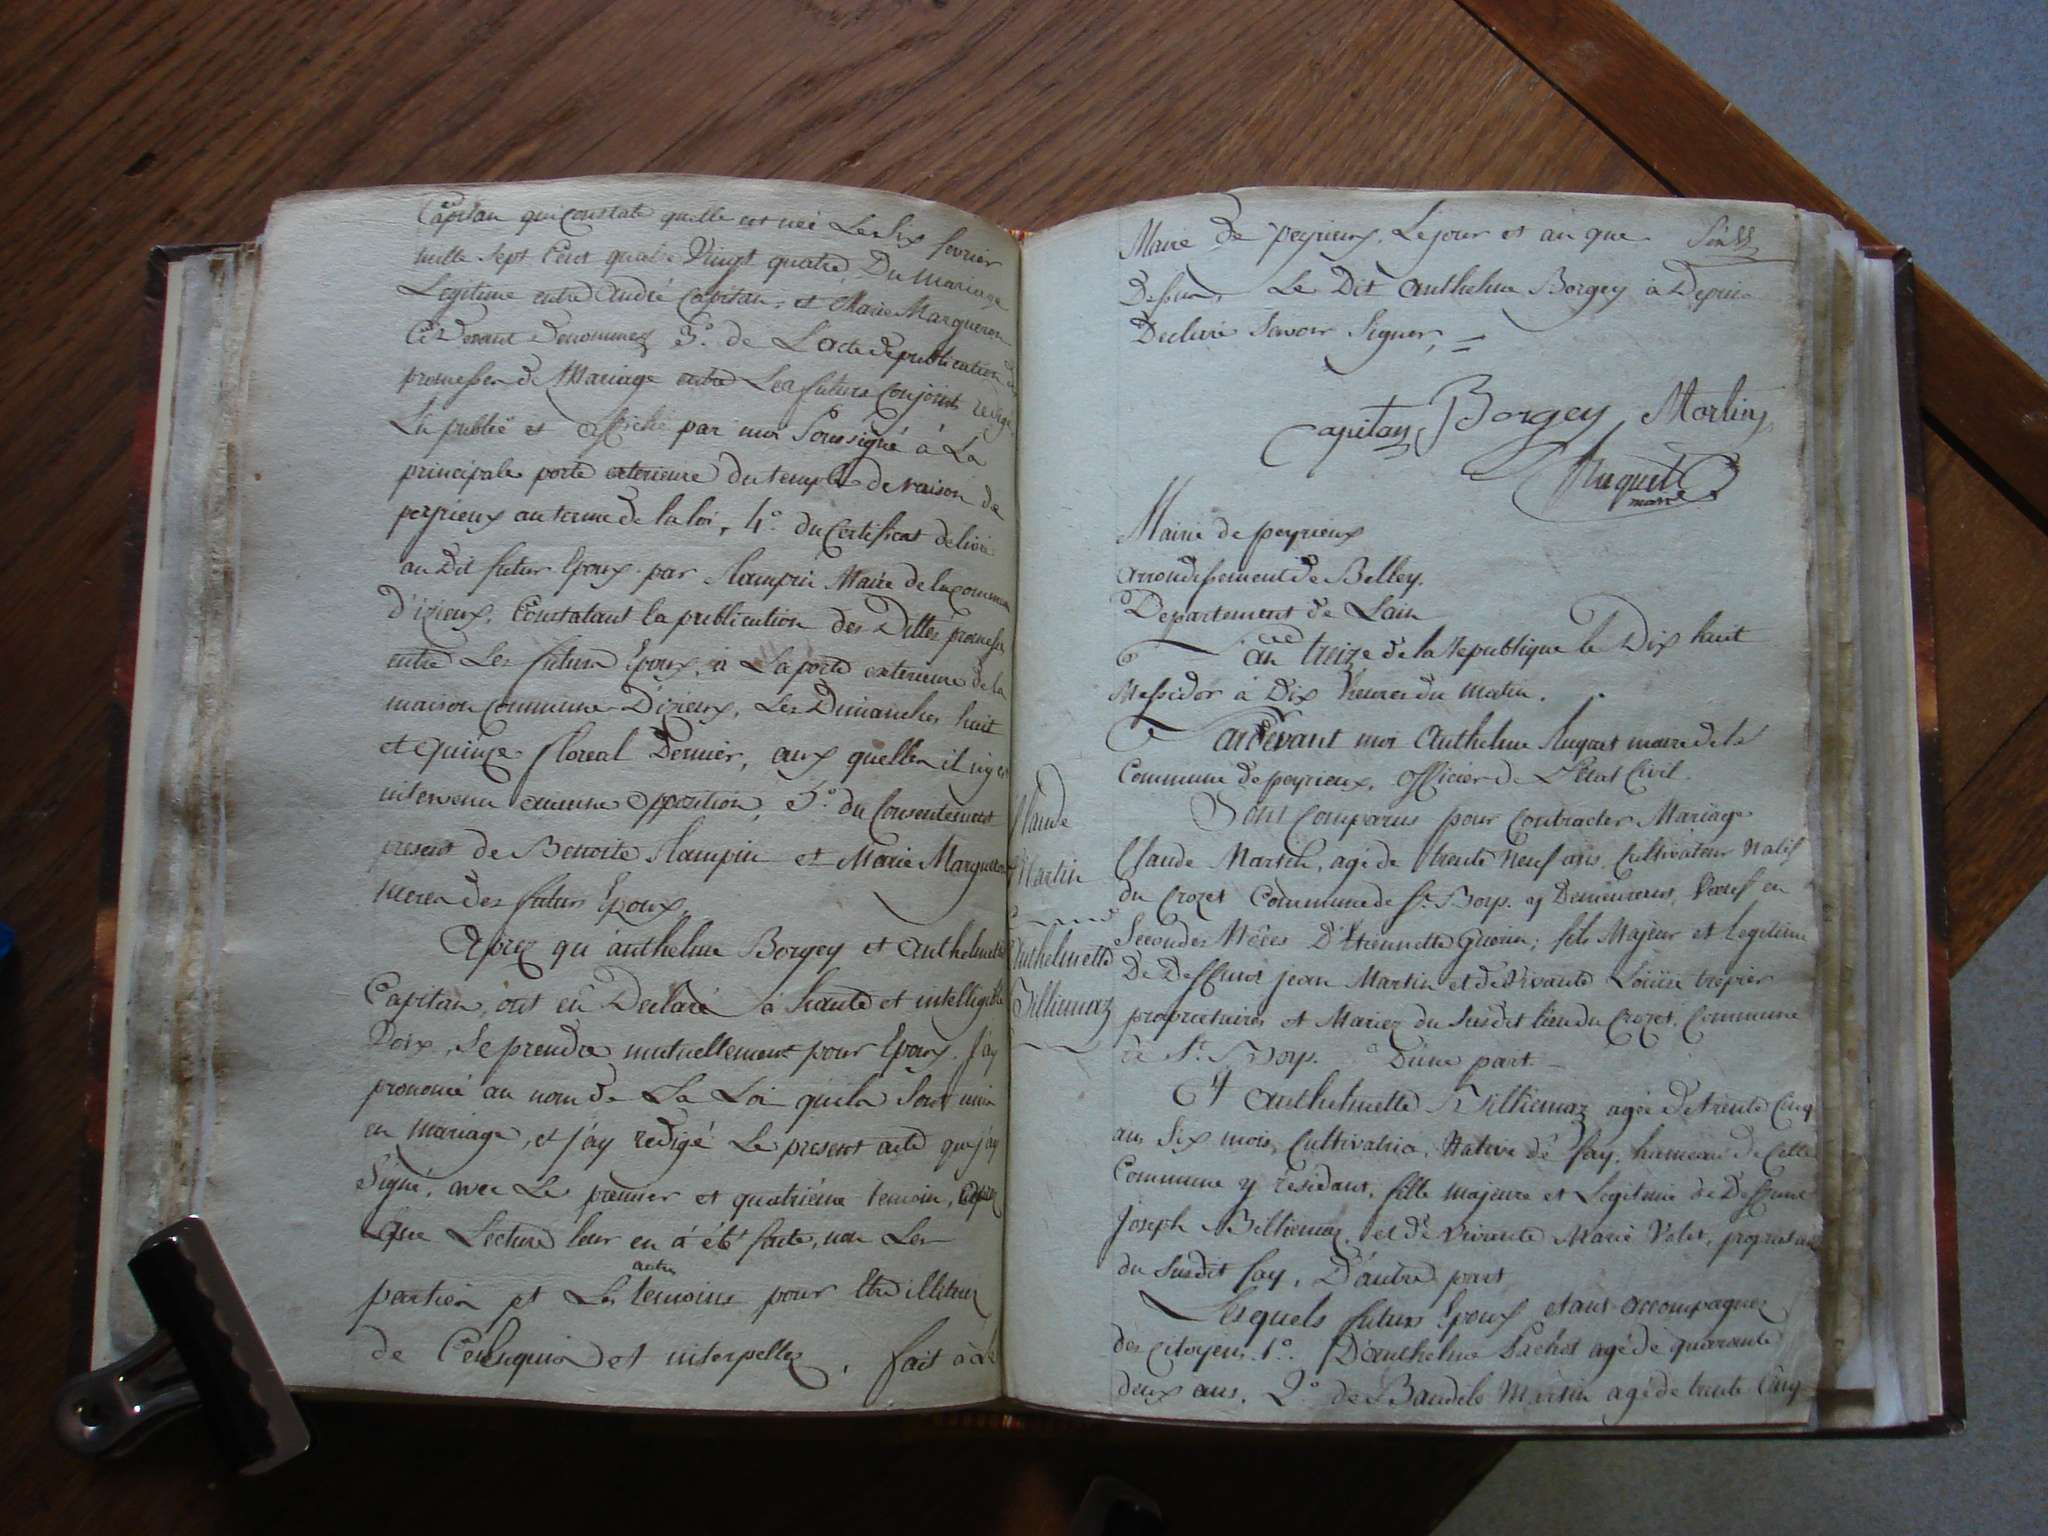 Capitan qui constate quelle est née Le Six fevrier
mille sept Cent quatre Vingt quatre Du mariage
Legitime entre André Capitan, et Marie Margueron
Cy Devant Denommez 3.° de L'acte de publication des
promesses de Mariage entre Les futurs Conjoints redigé
Lu publié et affiché par moi Soussigné à La
principale porte exterieure du temple de raison de
peyrieux au terme de la loi, 4.° du Certificat delivré
au Dit futur Epoux par Maire de la commune
D'izieux, Constatant la publication des Dittes promesses
entre Les futurs Epoux, à La porte exterieure de la
maison Commune D'izieux, Les Dimanches huit
et quinze floreal Dernier, aux quelles il n'y est
intervenu aucune opposition, 5.° du Consentement
present de Benoite et Marie Margueron
meres des futurs Epoux.
Aprez qu'anthelme Borgey et anthelmette
Capitan, ont eu Declaré à haute et intelligible
Voix, Se prendre mutuellement pour Epoux. J'ay
prononcé au nom de La Loi quils Sont unis
en mariage, et j'ay redigé Le present acte que j'ay
Signé, avec Le premier et quatriéme temoin, aprez
Que Lecture leur en à été faite, non Les
parties et Les autres temoins pour Etre illiterez
de Ce Enquis et interpellez, fait à La
Maire de peyrieux, Le jour et an que
Dessus, Le Dit Anthelme Borgey à Depuis
Declaré Savoir Signer, =
Capitan, Borgey Martin
Huguet
maire
Mairie de peyrieux
arrondissement de Belley.
Departement de Lain
an treize de la republique le Dix huit
Messidor à Dix heures du Matin.
Pardevant moi Anthelme Huguet maire de la
Commune de peyrieux, officier de L'Etat Civil.
Sont Comparus pour Contracter Mariage
Claude Martin, agé de trente Neuf ans, Cultivateur Natif
du Crozet Commune de St. Boys. y Demeurant, Veuf en
Secondes Nôces D'Etiennette Guerin; fils Majeur et Legitime
De Deffunt jean Martin et de Vivante Loüise trepier
proprietaires et Mariez du Susdit lieu du Crozet, Commune
de St. Boys. D'une part.
Et Anthelmette Billiemaz agée de trente Cinq
ans Six mois, Cultivatrice, Native de fay, hameau de Cette
Commune y residant, fille majeure et Legitime de Deffunt
Joseph Billiemaz, et de Vivante Marie Velet, proprietaires
du Susdit fay, D'autre part
Lesquels futurs Epoux etant accompagnez
des Citoyens. 1.° D'anthelme Pachot agé de quarante
deux ans, 2.° de Baudile Martin agé de trente Cinq
Claude
Martin
Anthelmette
Billiemaz